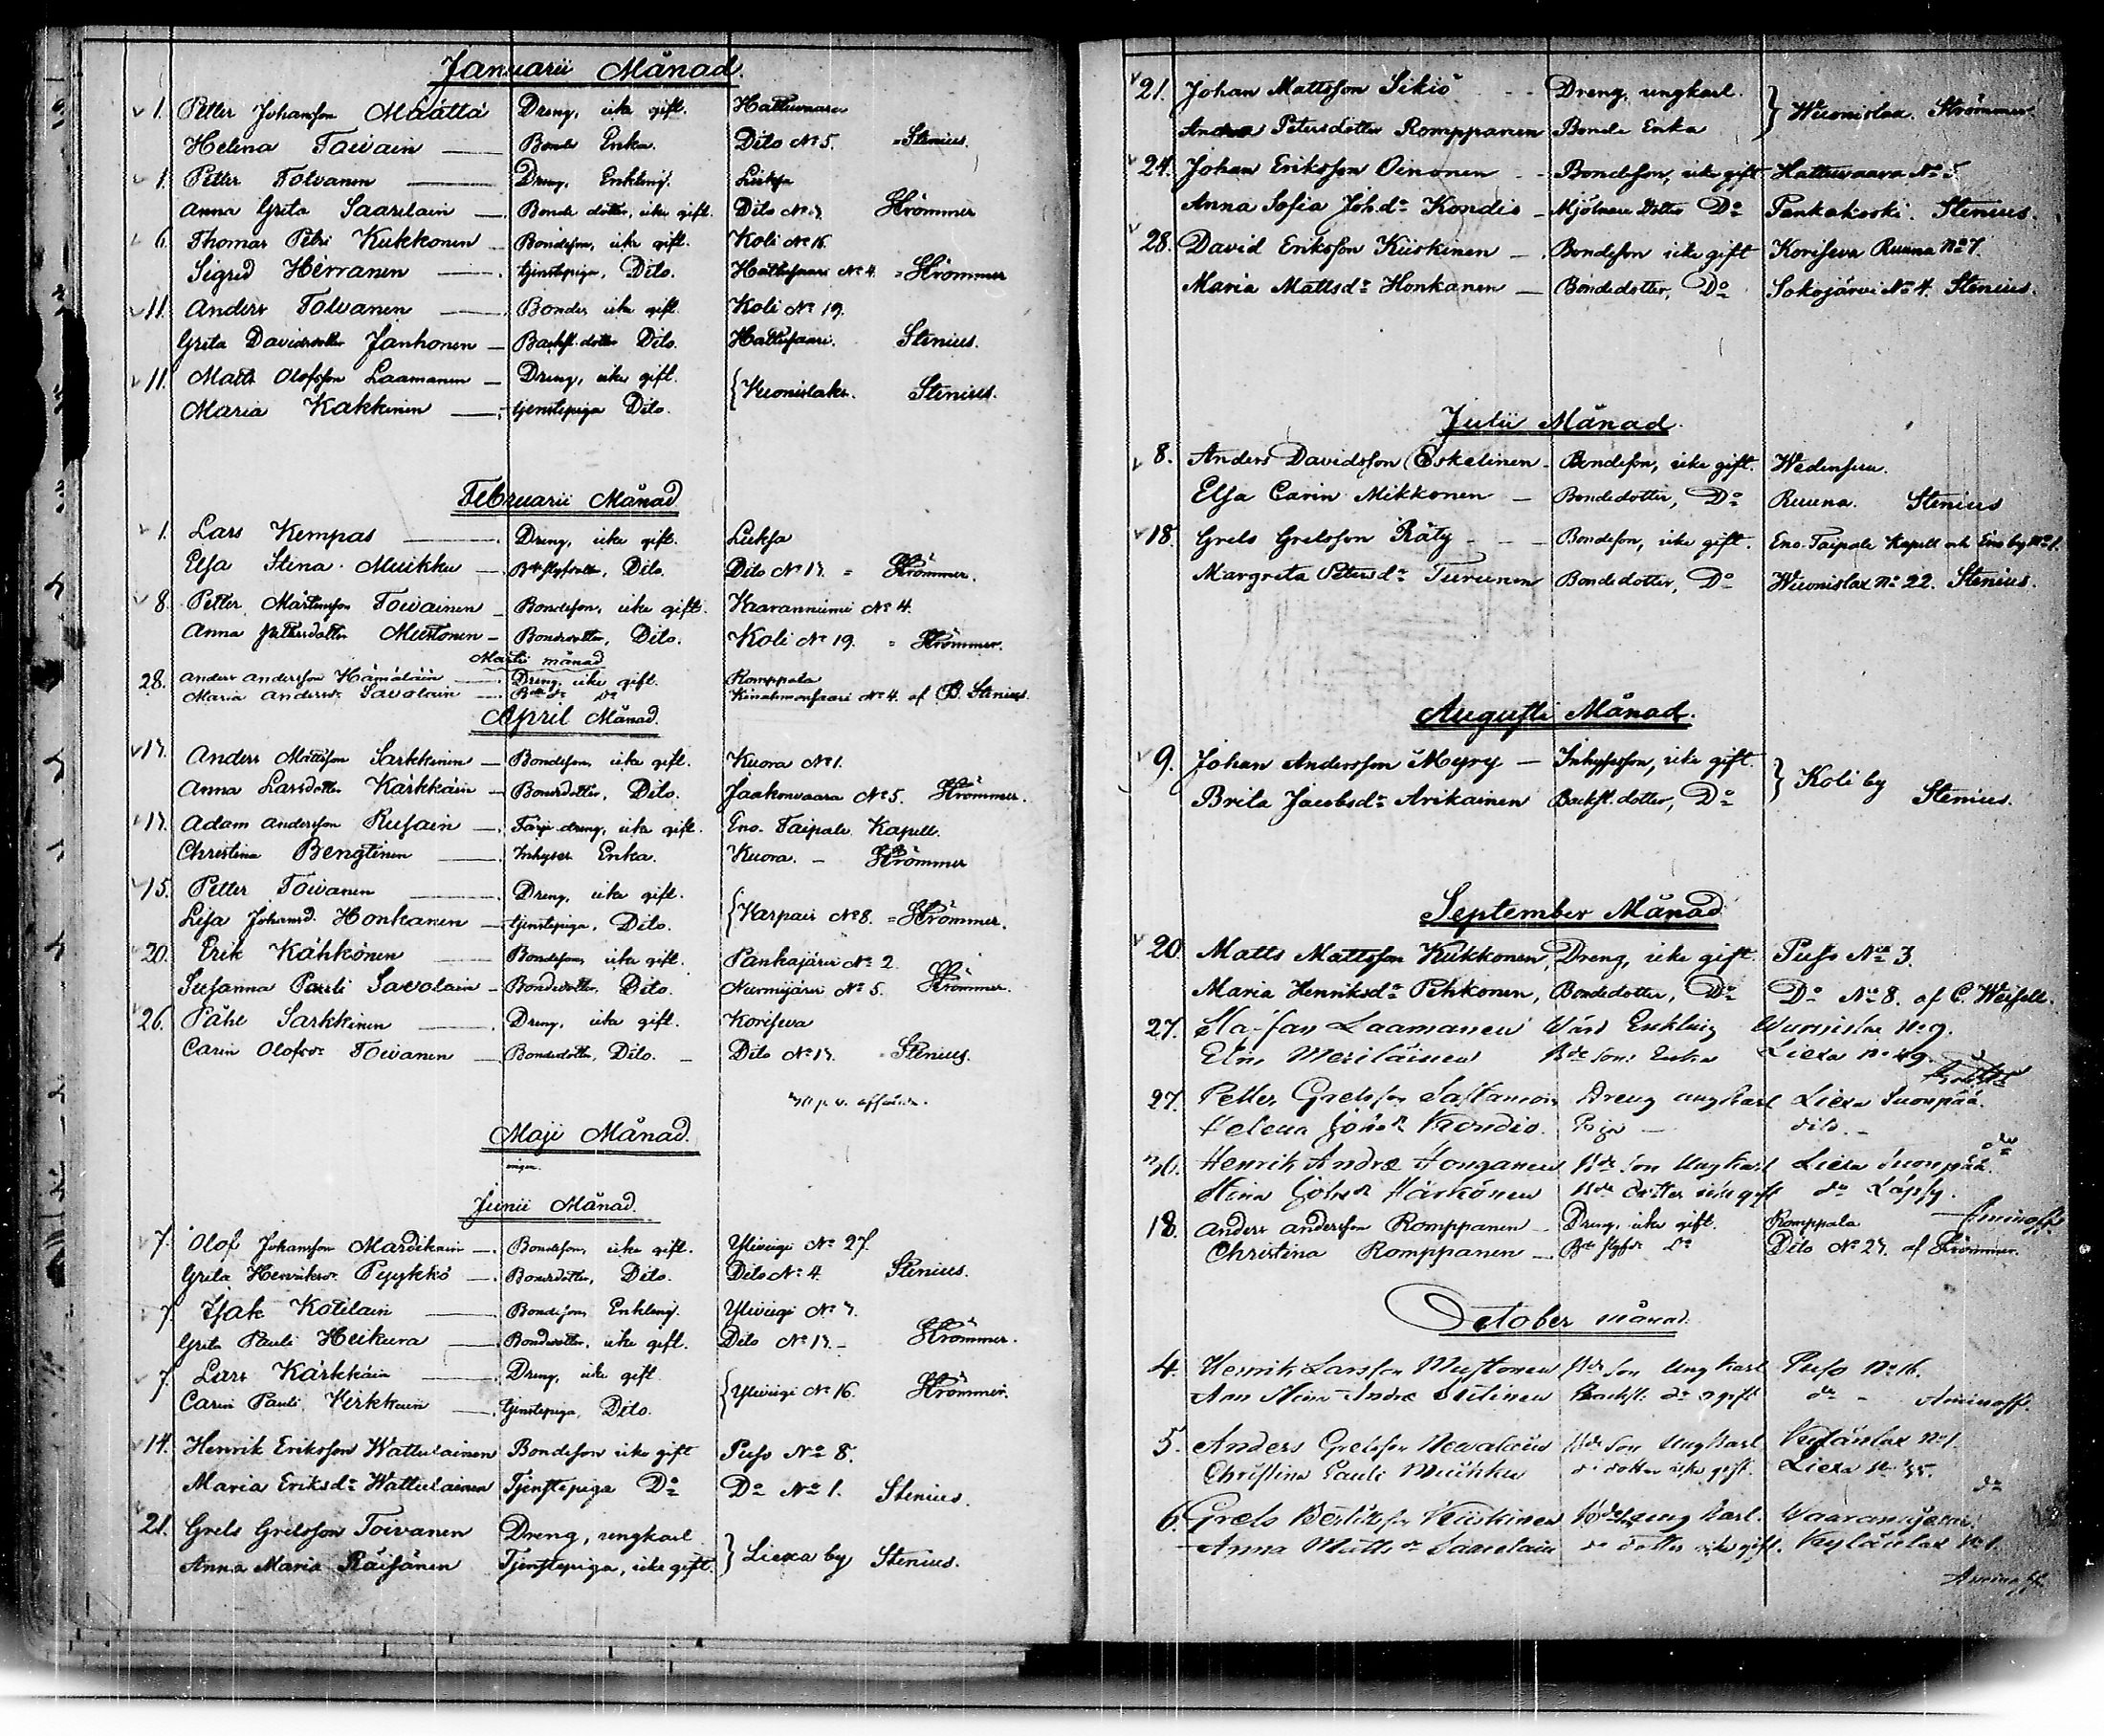 Januarii Månad.
1. Petter Johansson Määttä Dreng, icke gift. Hattuvaara
Helena Toivain Bonde Enka. Dito No 5. Stenius.
1. Petter Tolvanen Dreng, Enkling. Lieksa
Anna Greta Saarelain Bonde dotter, icke gift. Dito No 7. Strömmer
6. Thomas Petri Kukkonen Bondeson, icke gift. Koli No 16.
Sigred Herranen tjenstepiga, Dito. Hattusaari No 4. Strömmer
11. Anders Tolvanen Bonde, icke gift. Koli No 19.
Greta Davidsdotter Janhonen Backst. dotter Dito. Hattusaari. Stenius.
11. Matts Olofsson Laamanen Dreng, icke gift.
Maria Kakkinen tjenstepiga Dito. Stenius.
Februarii Månad
1. Lars Kempas Dreng, icke gift. Lieksa
Elsa Stina Muikku Dito. Dito No 17. Strömmer.
8. Petter Mårtensson Toivainen Bondeson, icke gift. Kaaranniemi No 4.
Anna Pettersdotter Mustonen Bondedotter, Dito. Koli No 19. Strömmer.
Martii månad
28. Anders Andersson Hämäläin Dreng, icke gift. Romppala
Maria Andersdr Savolain Kinahmonsaari No 4. af B. Stenius.
April Månad.
17. Anders Mattsson Sarkkinen Bondeson, icke gift. Kuora No 1.
Anna Larsdotter Kärkkäin Bondedotter, Dito. Jaakonvaara No 5. Strömmer.
17. Adam Andersson Rusain dreng, icke gift. Eno-Taipale Kapell.
Christina Bengtinen Inhyses Enka. Kuora. Strömmer
15. Petter Toivanen Dreng, icke gift.
Lisa Johansd. Honkanen tjenstepiga, Dito. Karpais No 8. Strömmer.
20. Erik Kähkönen Bondeson, icke gift. Pankajärvi No 2.
Susanna Pauli Savolain Bondedotter, Dito. Nurmijärvi No 5. Strömmer.
26. Påhl Sarkkinen Dreng, icke gift. Koriseva
Carin Olofsdr Toivanen Bondedotter, Dito. Dito No 17. Stenius.
Maji Månad.
ingen.
Junii Månad.
7. Olof Johansson Mardikain Bondeson, icke gift. Ylivigi No 27.
Greta Henriksdr Pyykkö Bondedotter, Dito. Dito No 4. Stenius.
7. Isak Kotilain Bondeson, Enkling. Ylivigi No 7.
Greta Pauli Heikura Bondedotter, icke gift. Dito No 17. Strömmer.
7. Lars Kärkkäin Dreng, icke gift
Carin Pauli Kirkkain tjenstepiga, Dito. Ylivigi No 16. Strömmer.
14. Henrik Eriksson Wattulainen Bondeson icke gift Puso No 8.
Maria Eriksd:r Wattulainen Tjenstepiga Do Do No 1. Stenius.
21. Grels Grelsson Toivanen Dreng, ungkarl
Anna Maria Räisänen Tjenstepiga, icke gift. } Liexa by Stenius.
21. Johan Mattsson Sikiö Dreng, ungkarl.
Petersdotter Romppanen Bonde Enka } Wuonislax. Strömmer
24. Johan Eriksson Oinonen Bondeson, icke gift Hattuvaara No 5.
Anna Sofia Joh.dr Kondio Mjölnare Dotter Do Pankakoski. Stenius.
28. David Eriksson Kiiskinen Bondeson icke gift Koriseva Ruuna No 7.
Maria Mattsdr Honkanen Bondedotter, Do Sokojärvi No 4. Stenius.
Julii Månad.
8. Anders Davidsson Eskelinen Bondeson, icke gift.
Elsa Carin Mikkonen Bondedotter, Do Ruuna. Stenius
18. Grels Grelsson Räty Bondeson, icke gift. Eno-Taipale Kapell och Eno by No 1.
Margreta Petersdr Turunen Bondedotter, Do Wuonislax No 22. Stenius.
Augusti Månad.
9. Johan Andersson Myry Inhysesson, icke gift.
Brita Jacobsdr Arikainen Backst. dotter, Do } Koli by Stenius.
September Månad
20 Matts Mattsson Kukkonen, Dreng, icke gift. Puso No 3.
Maria Henriksdr Pehkonen, Bondedotter, Do Do No 8. af C. Weisell.
27. Staffan Laamanen Enkling Wuonislax No 9.
Elin Meriläinen Enka Liexa No 49.
27. Petter Grelsson Sastamoin Dreng ungkarl Liexa Suonpää.
Helena Kondio. Piga dito.
30. Henrik Andræ Honganen Bde son Ungkarl Liexa Suonpää. do
Stina Härkönen Bde dotter icke gift do
18. Anders Andersson Romppanen Dreng, icke gift. Romppala Aminoff
Christina Romppanen Do Dito No 27. af Strömmer.
October månad.
4. Henrik Larsson Mustonen Bde son Ungkarl Puso No 16.
Ann Stina Andræ Backst. dr ogift do Aminoff.
5. Anders Grelsson Nevalain Bde son Ungkarl No 1.
Christina Pauli Muikku do dotter icke gift. Liexa No 35. do
6. Grels Kiiskinen ungkarl.
Anna Mattsdr Saarelain do dotter icke gift. No 1.
Aminoff.